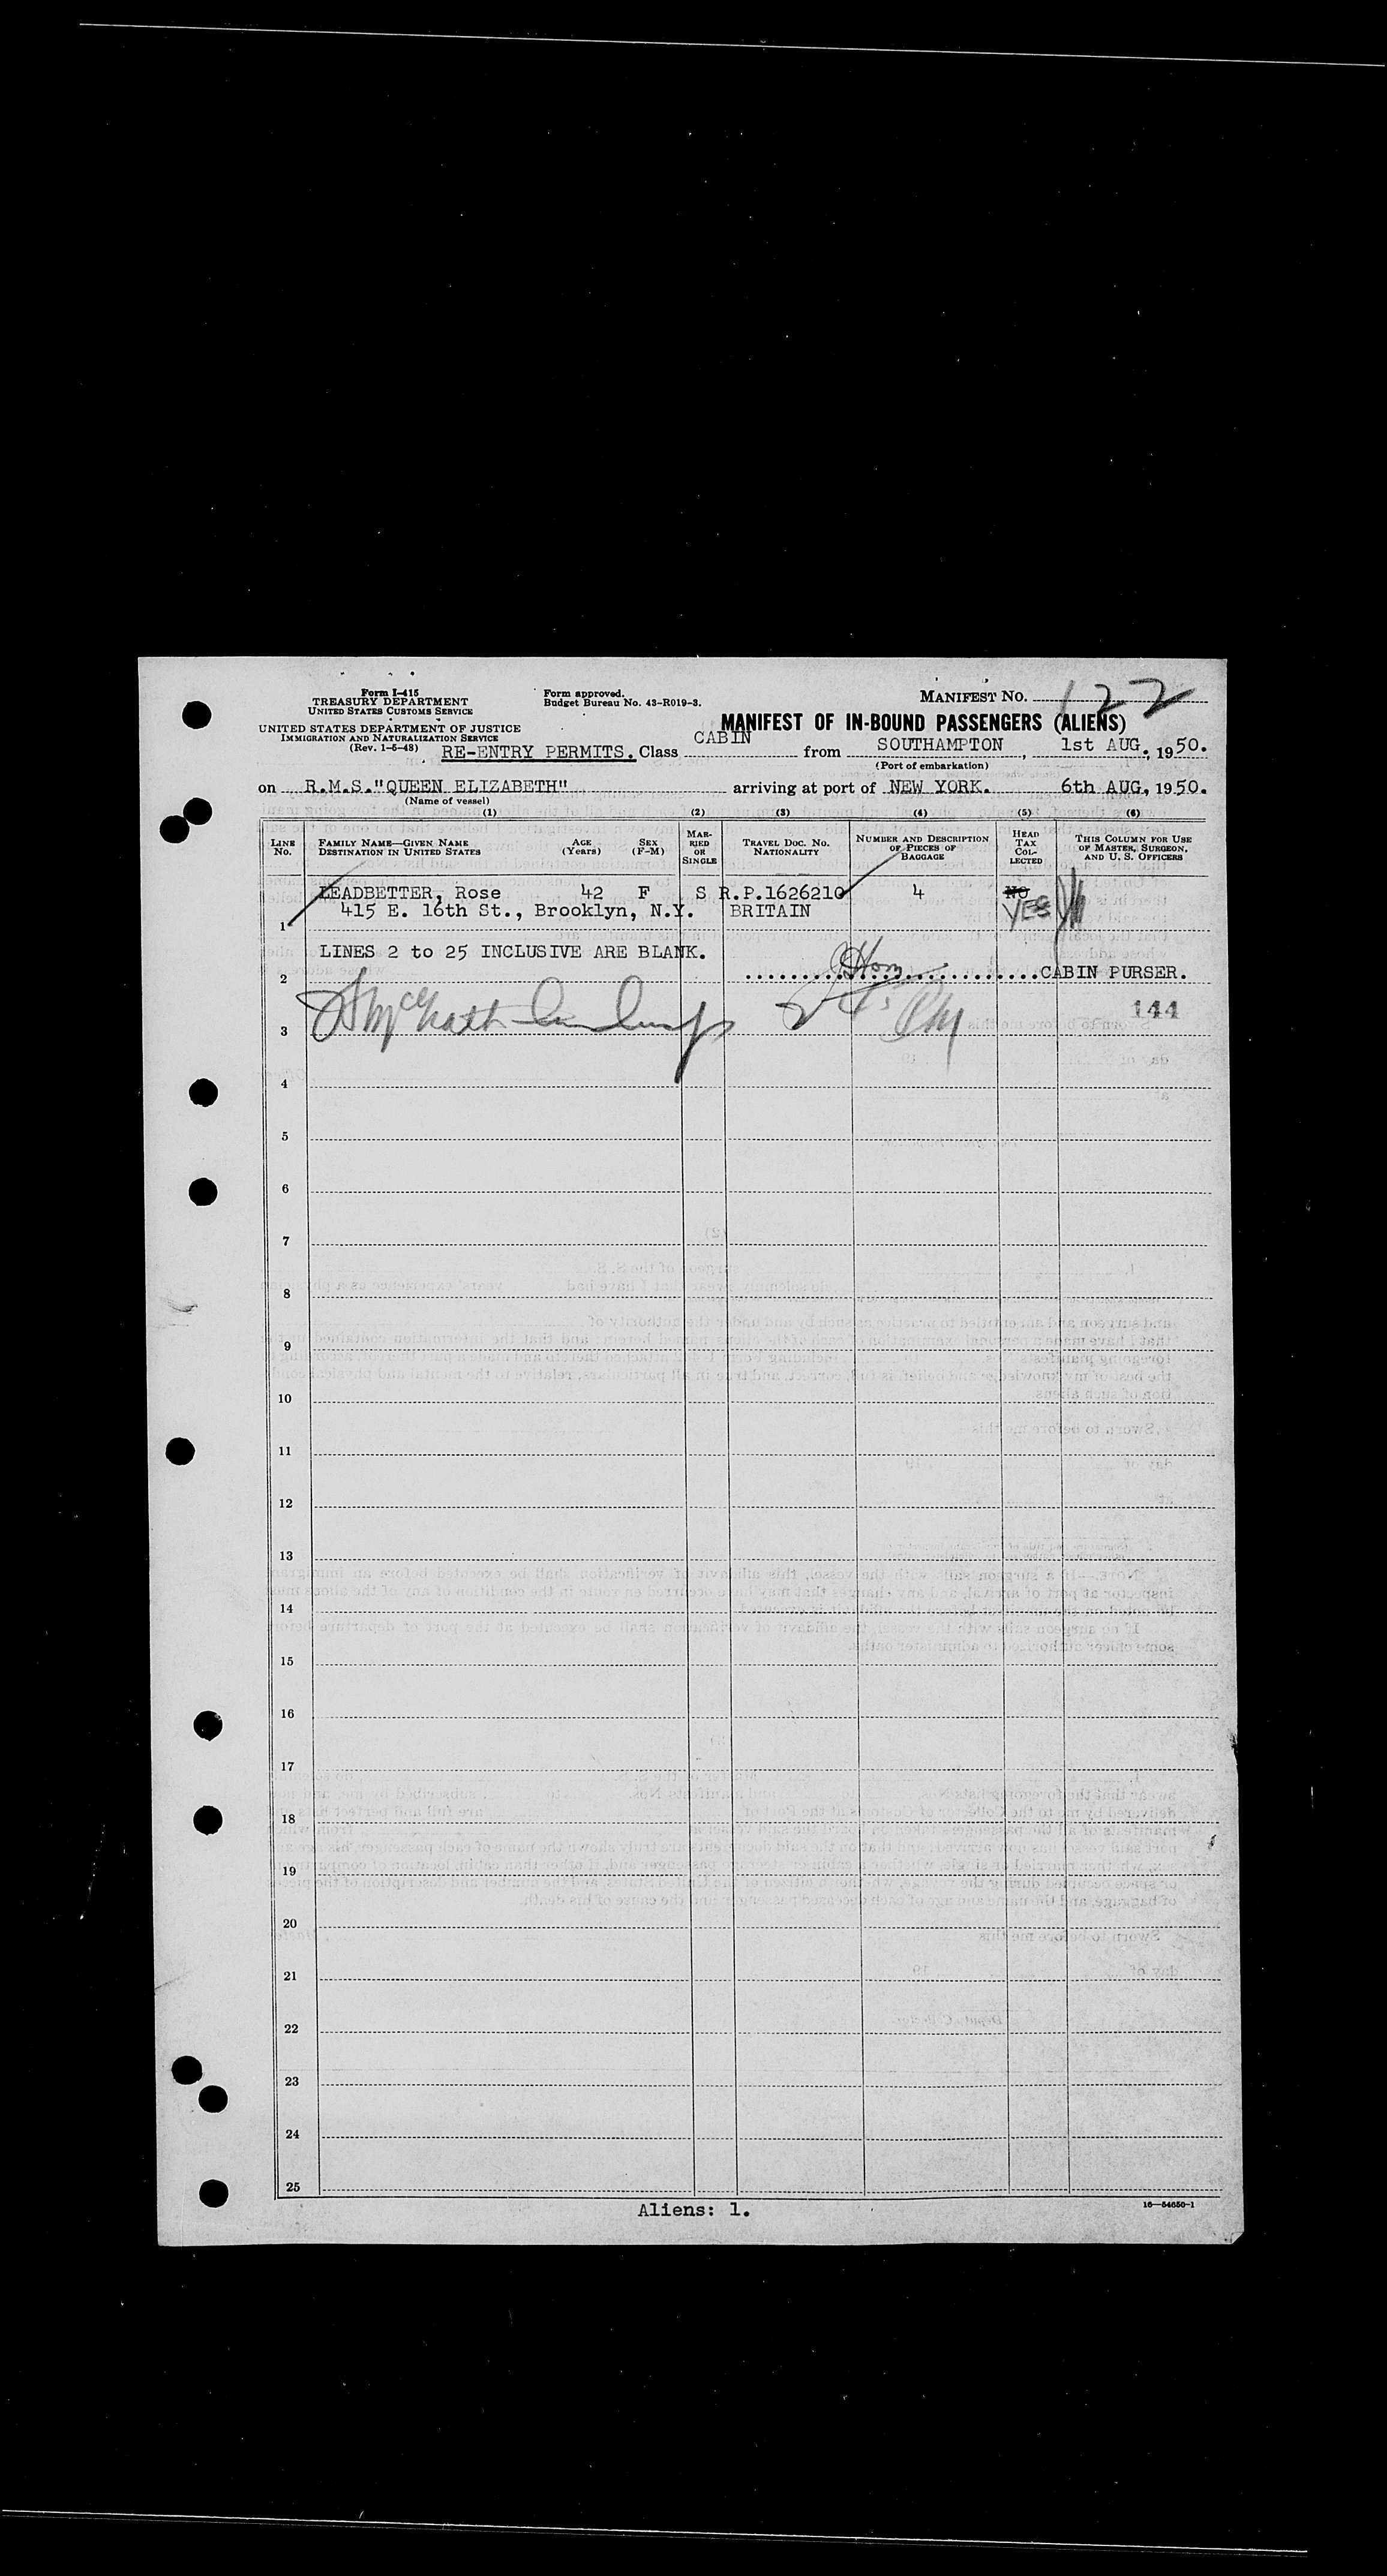 Form I-415
TREASURY DEPARTMENT
UNITED STATES CUSTOMS SERVICE
UNITED STATES DEPARTMENT OF JUSTICE
IMMIGRATION AND NATURALIZATION SERVICE
(Rev. 1-5-48)
Form approved.
Budget Bureau No. 43-R019-3.
MANIFEST NO. 122
MANIFEST OF IN-BOUND PASSENGERS (ALIENS)
RE-ENTRY PERMITS. Class CABIN from SOUTHAMPTON, 1st AUG., 1950.
(Port of embarkation)
on R.M.S. "QUEEN ELIZABETH" arriving at port of NEW YORK. 6th AUG, 1950.
(Name of vessel)
(1) (2) (3) (4) (5) (6)
LINE NO. FAMILY NAME—GIVEN NAME DESTINATION IN UNITED STATES AGE (Years) SEX (F-M) MARRIED OR SINGLE TRAVEL DOC. NO. NATIONALITY NUMBER AND DESCRIPTION OF PIECES OF BAGGAGE HEAD TAX COLLECTED THIS COLUMN FOR USE OF MASTER, SURGEON, AND U. S. OFFICERS
LEADBETTER, Rose 42 F S R.P.1626210 4 NO
1 415 E. 16th St., Brooklyn, N.Y. BRITAIN YES
LINES 2 to 25 INCLUSIVE ARE BLANK.
2 CABIN PURSER.
144
3
4
5
6
7
8
9
10
11
12
13
14
15
16
17
18
19
20
21
22
23
24
25
Aliens: 1.
16—54650-1